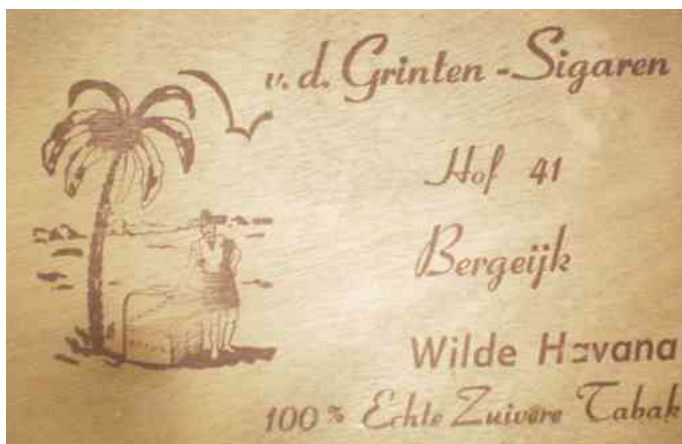 v. d. Grinten - Sigaren
Hof 41
Bergeijk
Wilde Havana
100 % Echte Zuivere Tabak